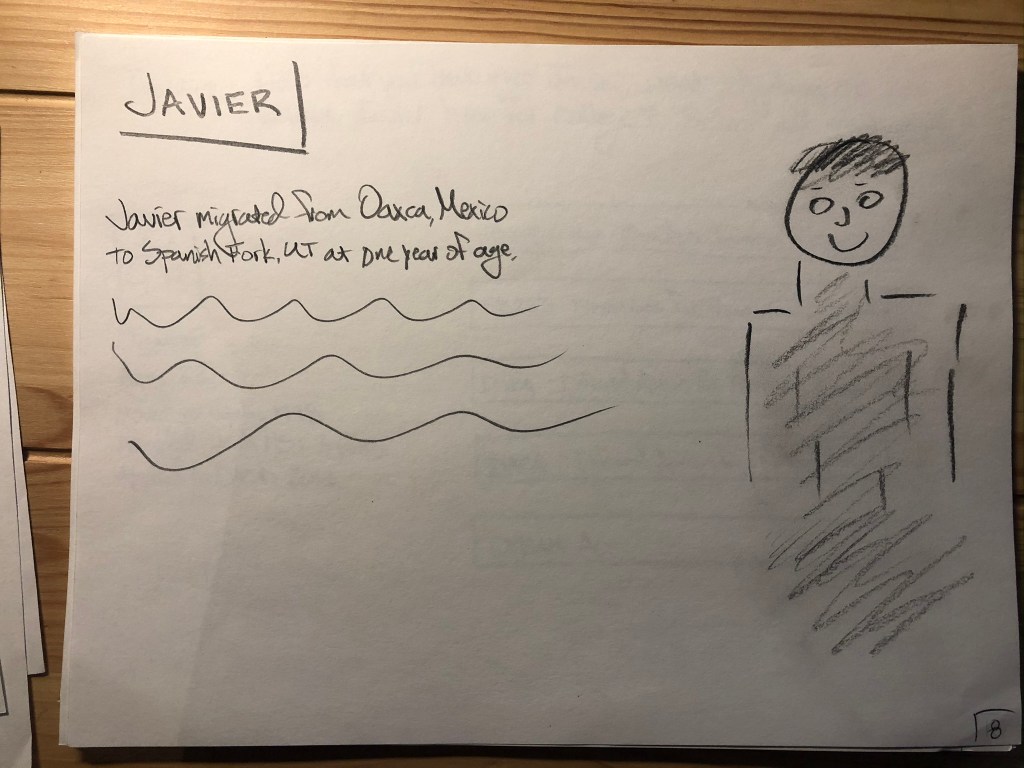 JAVIER
Javier migrated from Oaxca, Mexico
to Spanish Fork, UT at one year of age.
8